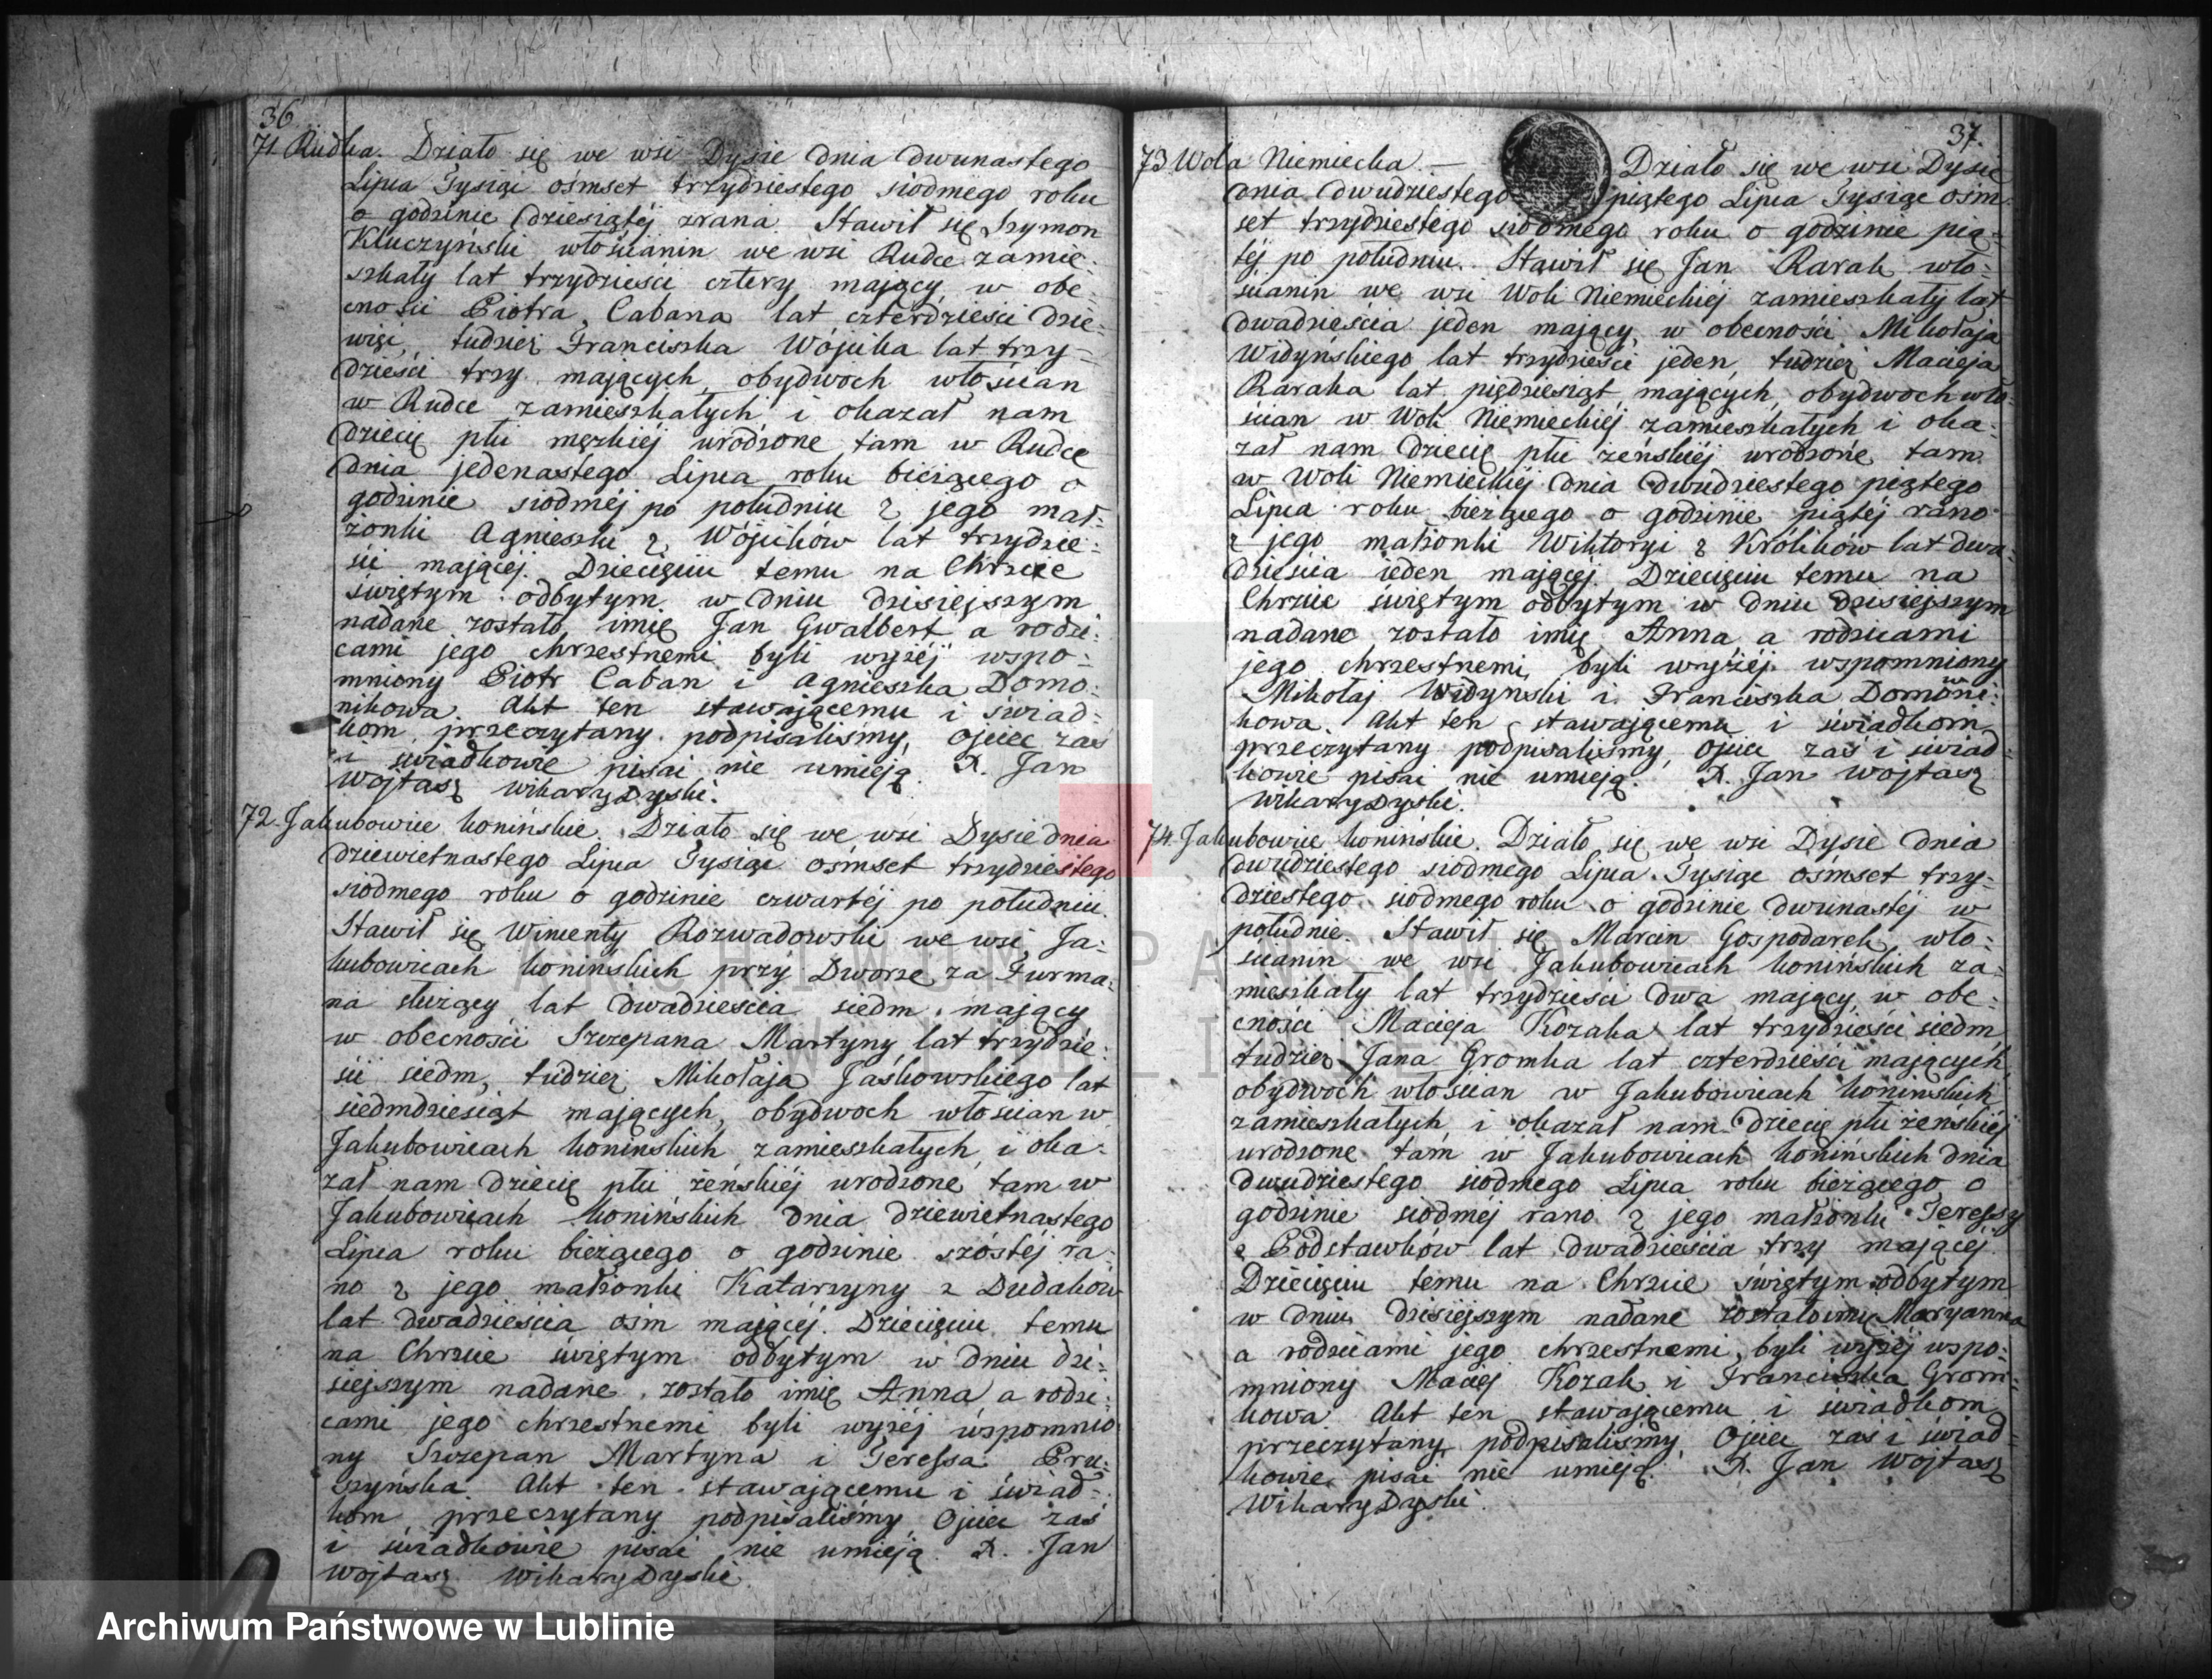 36
71 Rudka. Działo się we wsi Dysie dnia dwunastego
Lipca Tysiąc ośmset trzydziestego siodmego roku
o godzinie dziesiątéj zrana. Stawił się Szymon
Kluczyński włościanin we wsi Rudce zamie-
szkały lat trzydzieści cztery mający w obe-
cności Piotra Cabana lat czterdzieści dzie-
więć, tudzież Franciszka Wójcika lat trzy-
dzieści trzy mających, obydwoch włościan
w Rudce zamieszkałych i okazał nam
dziecię płci męzkiéj urodzone tam w Rudce
dnia jedenastego Lipca roku bieżącego o
godzinie siodméj po południu z jego mał-
żonki Agnieszki z Wójcików lat trzydzie-
ści mającéj. Dziecięciu temu na Chrzcie
świętym odbytym w dniu dzisiejszym
nadane zostało imię Jan Gwalbert a rodzi-
cami jego chrzestnemi byli wyżéj wspo-
mniony Piotr Caban i Agnieszka Domo-
nikowa. Akt ten stawającemu i świad-
kom przeczytany podpisaliśmy, Ojciec zaś
i świadkowie pisać nie umieją. X. Jan
Wojtasz wikary Dyski.
72. Jakubowice konińskie. Działo się we wsi Dysie dnia
dziewietnastego Lipca Tysiąc ośmset trzydziestego
siodmego roku o godzinie czwartéj po południu.
Stawił się Wincenty Rozwadowski we wsi Ja-
kubowicach konińskich przy Dworze za Furma-
na służący lat dwadzieścia siedm mający
w obecności Szczepana Martyny lat trzydzie-
ści siedm, tudzież Mikołaja Jaskowskiego lat
siedmdziesiąt mających, obydwoch włościan w
Jakubowicach konińskich zamieszkałych i oka-
zał nam dziecię płci żeńskiéj urodzone tam w
Jakubowicach konińskich dnia dziewietnastego
Lipca roku bieżącego o godzinie szóstéj ra-
no z jego małżonki Katarzyny z Dudaków
lat dwadzieścia ośm mającéj. Dziecięciu temu
na Chrzcie świętym odbytym w dniu dzi-
siejszym nadane zostało imię Anna, a rodzi-
cami jego chrzestnemi byli wyżéj wspomnio-
ny Szczepan Martyna i Teressa Pru-
szyńska. Akt ten stawającemu i świad-
kom przeczytany podpisaliśmy, Ojciec zaś
i świadkowie pisać nie umieją. X. Jan
Wojtasz Wikary Dyski
37.
73 Wola Niemiecka. — Działo się we wsi Dysie
dnia dwudziestego piątego Lipca Tysiąc ośm-
set trzydziestego siódmego roku o godzinie pią-
téj po południu. Stawił się Jan Rarak wło-
ścianin we wsi Woli Niemieckiéj zamieszkały lat
dwadzieścia jeden mający, w obecności Mikołaja
Widyńskiego lat trzydzieści jeden, tudzież Macieja
Raraka lat pięćdziesiąt mających, obydwoch wło-
ścian w Woli Niemieckiéj zamieszkałych i oka-
zał nam dziecię płci żeńskiéj urodzone tam
w Woli Niemieckiéj dnia dwudziestego piątego
Lipca roku bieżącego o godzinie piątéj rano
z jego małżonki Wiktoryi z Królików lat dwa-
dzieścia jeden mającéj. Dziecięciu temu na
Chrzcie świętym odbytym w dniu dzisiejszym
nadane zostało imię Anna a rodzicami
jego chrzestnemi byli wyżéj wspomniony
Mikołaj Widyński i Franciszka Domoni-
kowa. Akt ten stawającemu i świadkom
przeczytany podpisaliśmy, Ojciec zaś i świad-
kowie pisać nie umieją. X. Jan Wojtasz
Wikary Dyski.
74. Jakubowice konińskie. Działo się we wsi Dysie dnia
dwudziestego siodmego Lipca Tysiąc ośmset trzy-
dziestego siodmego roku o godzinie dwunastéj w
południe. Stawił się Marcin Gospodarek wło-
ścianin we wsi Jakubowicach konińskich za-
mieszkały lat trzydzieści dwa mający w obe-
cności Macieja Kozaka lat trzydzieści siedm,
tudzież Jana Gromka lat czterdzieści mających,
obydwoch włościan w Jakubowicach konińskich
zamieszkałych i okazał nam dziecię płci żeńskiéj
urodzone tam w Jakubowicach konińskich dnia
dwudziestego siodmego Lipca roku bieżącego o
godzinie siodméj rano z jego małżonki Teressy
z Podstawków lat dwadzieścia trzy mającéj.
Dziecięciu temu na Chrzcie świętym odbytym
w dniu dzisiejszym nadane zostało imię Maryanna
a rodzicami jego chrzestnemi byli wyżéj wspo-
mniony Maciej Kozak i Franciszka Grom-
kowa. Akt ten stawającemu i świadkom
przeczytany podpisaliśmy, Ojciec zaś i świad-
kowie pisać nie umieją. X. Jan Wojtasz
Wikary Dyski.
ARCHIWUM PAŃSTWOWE
W LUBLINIE
Archiwum Państwowe w Lublinie